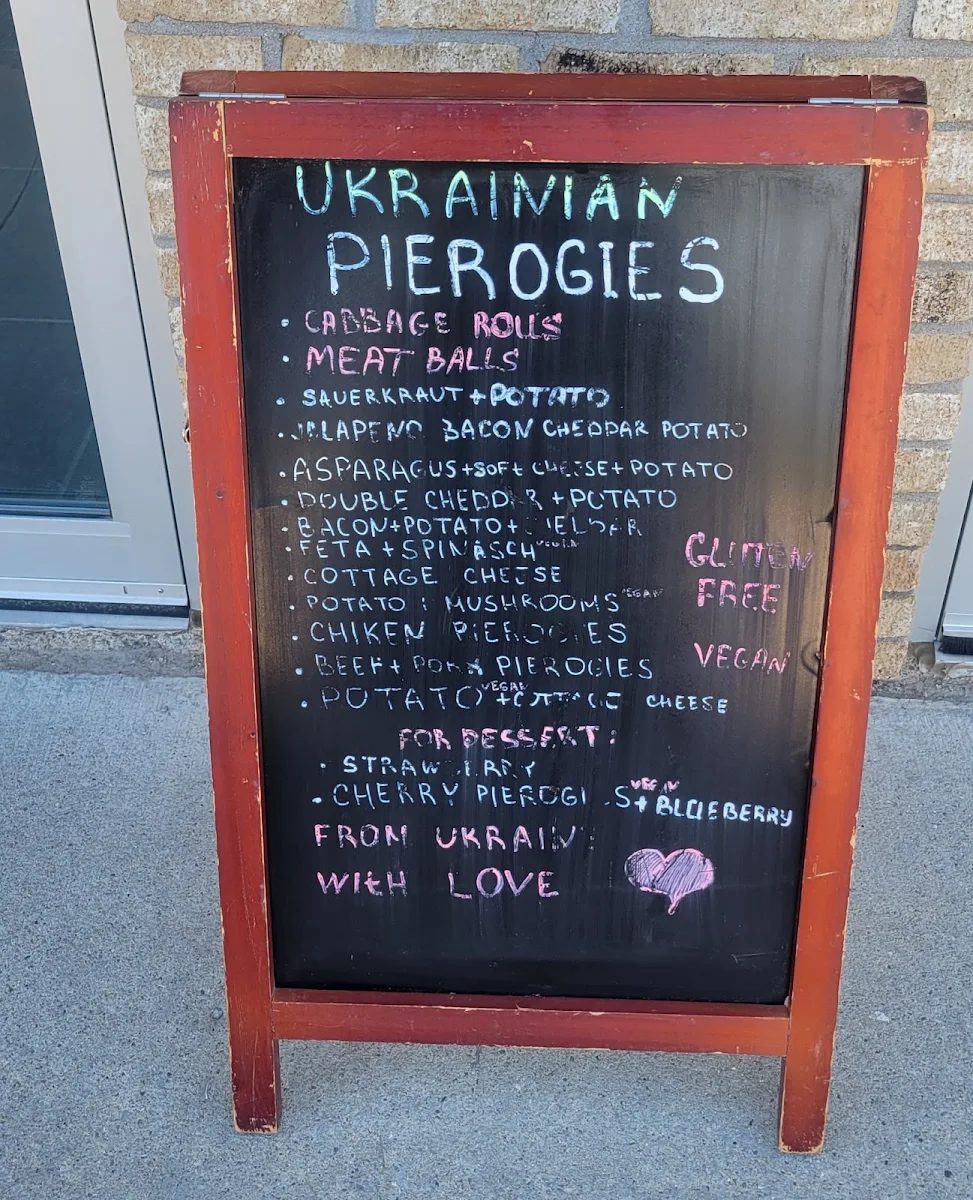 UKRAINIAN
PIEROGIES
• CABBAGE ROLLS
• MEAT BALLS
• SAUERKRAUT + POTATO
• JALAPENO BACON CHEDDAR POTATO
• ASPARAGUS + SOFt CHEESE + POTATO
• DOUBLE CHEDDAR + POTATO
• BACON + POTATO +
• FETA + SPINASCH VEGAN
• COTTAGE CHEESE
• POTATO : MUSHROOMS VEGAN
• CHIKEN PIEROGIES
• BEEF + PORK PIEROGIES
• POTATO VEGAN + COTTAGE CHEESE
GLUTEN
FREE
VEGAN
FOR DESSERT:
• STRAWBERRY
• CHERRY PIEROGIES VEGAN + BLUEBERRY
FROM UKRAINE
WItH LOVE